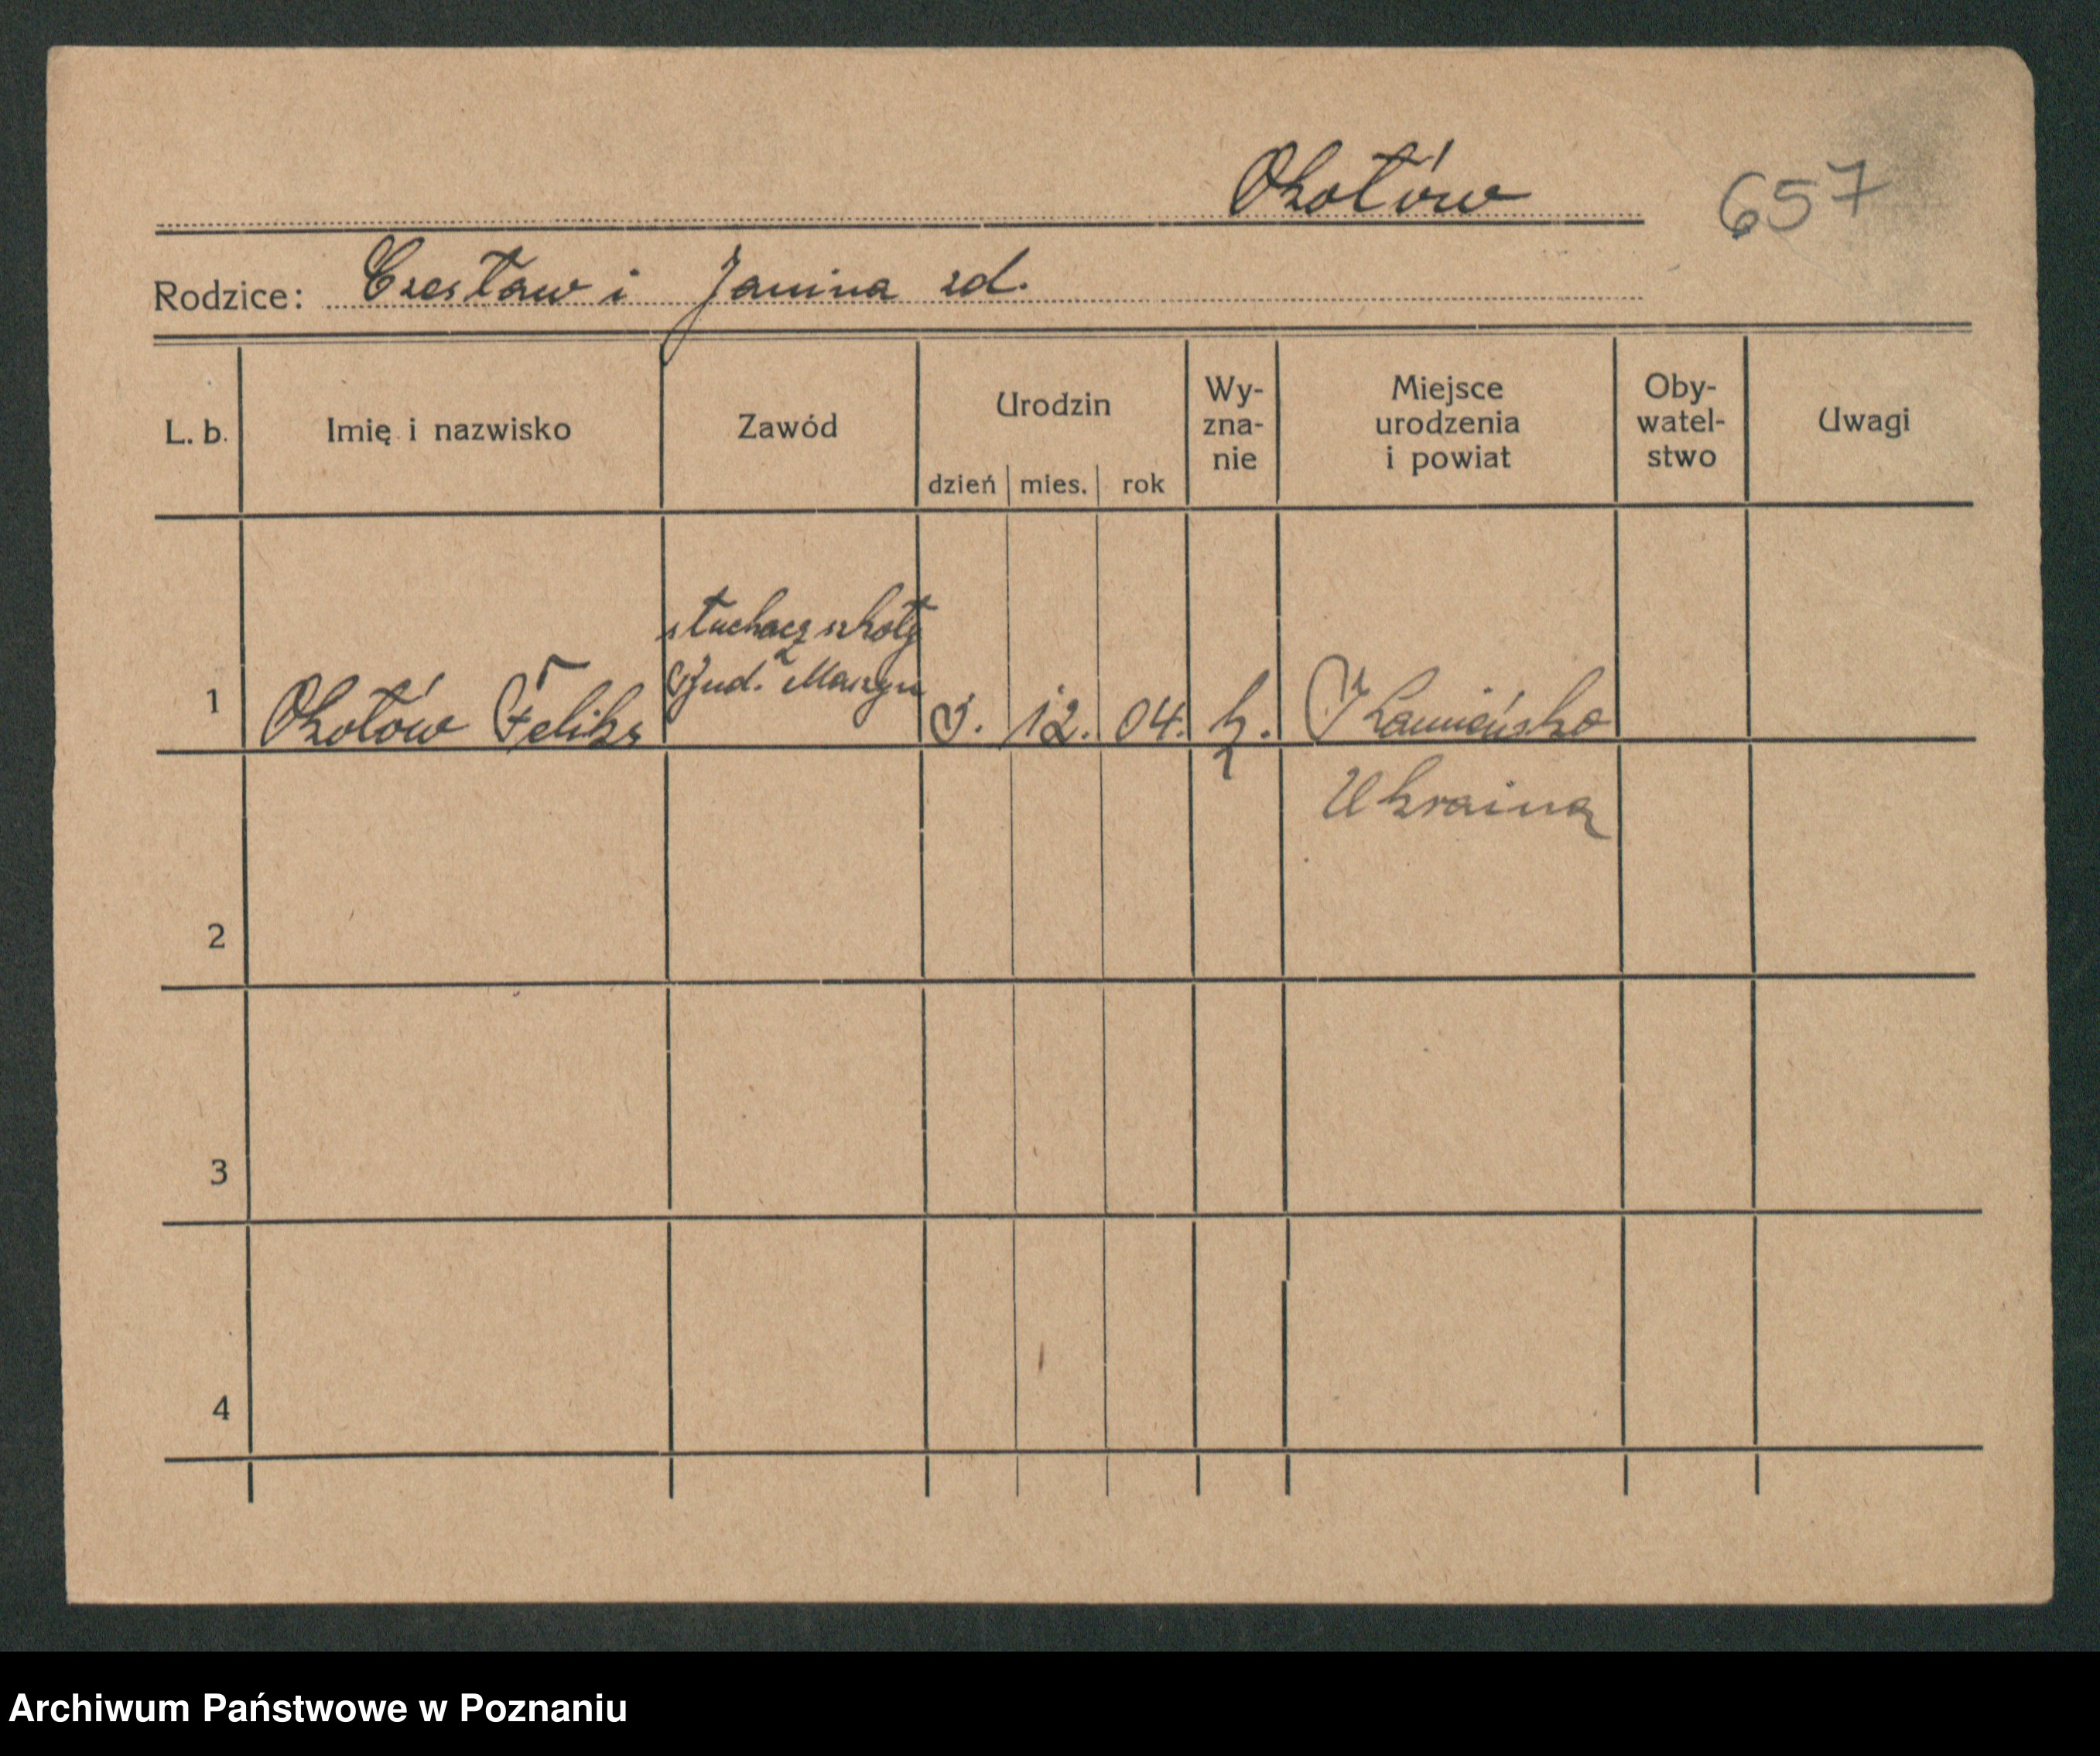 Okołów 657
Rodzice: Czesław i Janina zd.
L. b. Imię i nazwisko Zawód Urodzin dzień mies. rok Wy-zna-nie Miejsce urodzenia i powiat Oby-watel-stwo Uwagi
słuchacz szkoły
Bud. Maszyn
1 Okołów Feliks 3. 12. 04. k. Kamieńsko
Ukraina
2
3
4
Archiwum Państwowe w Poznaniu